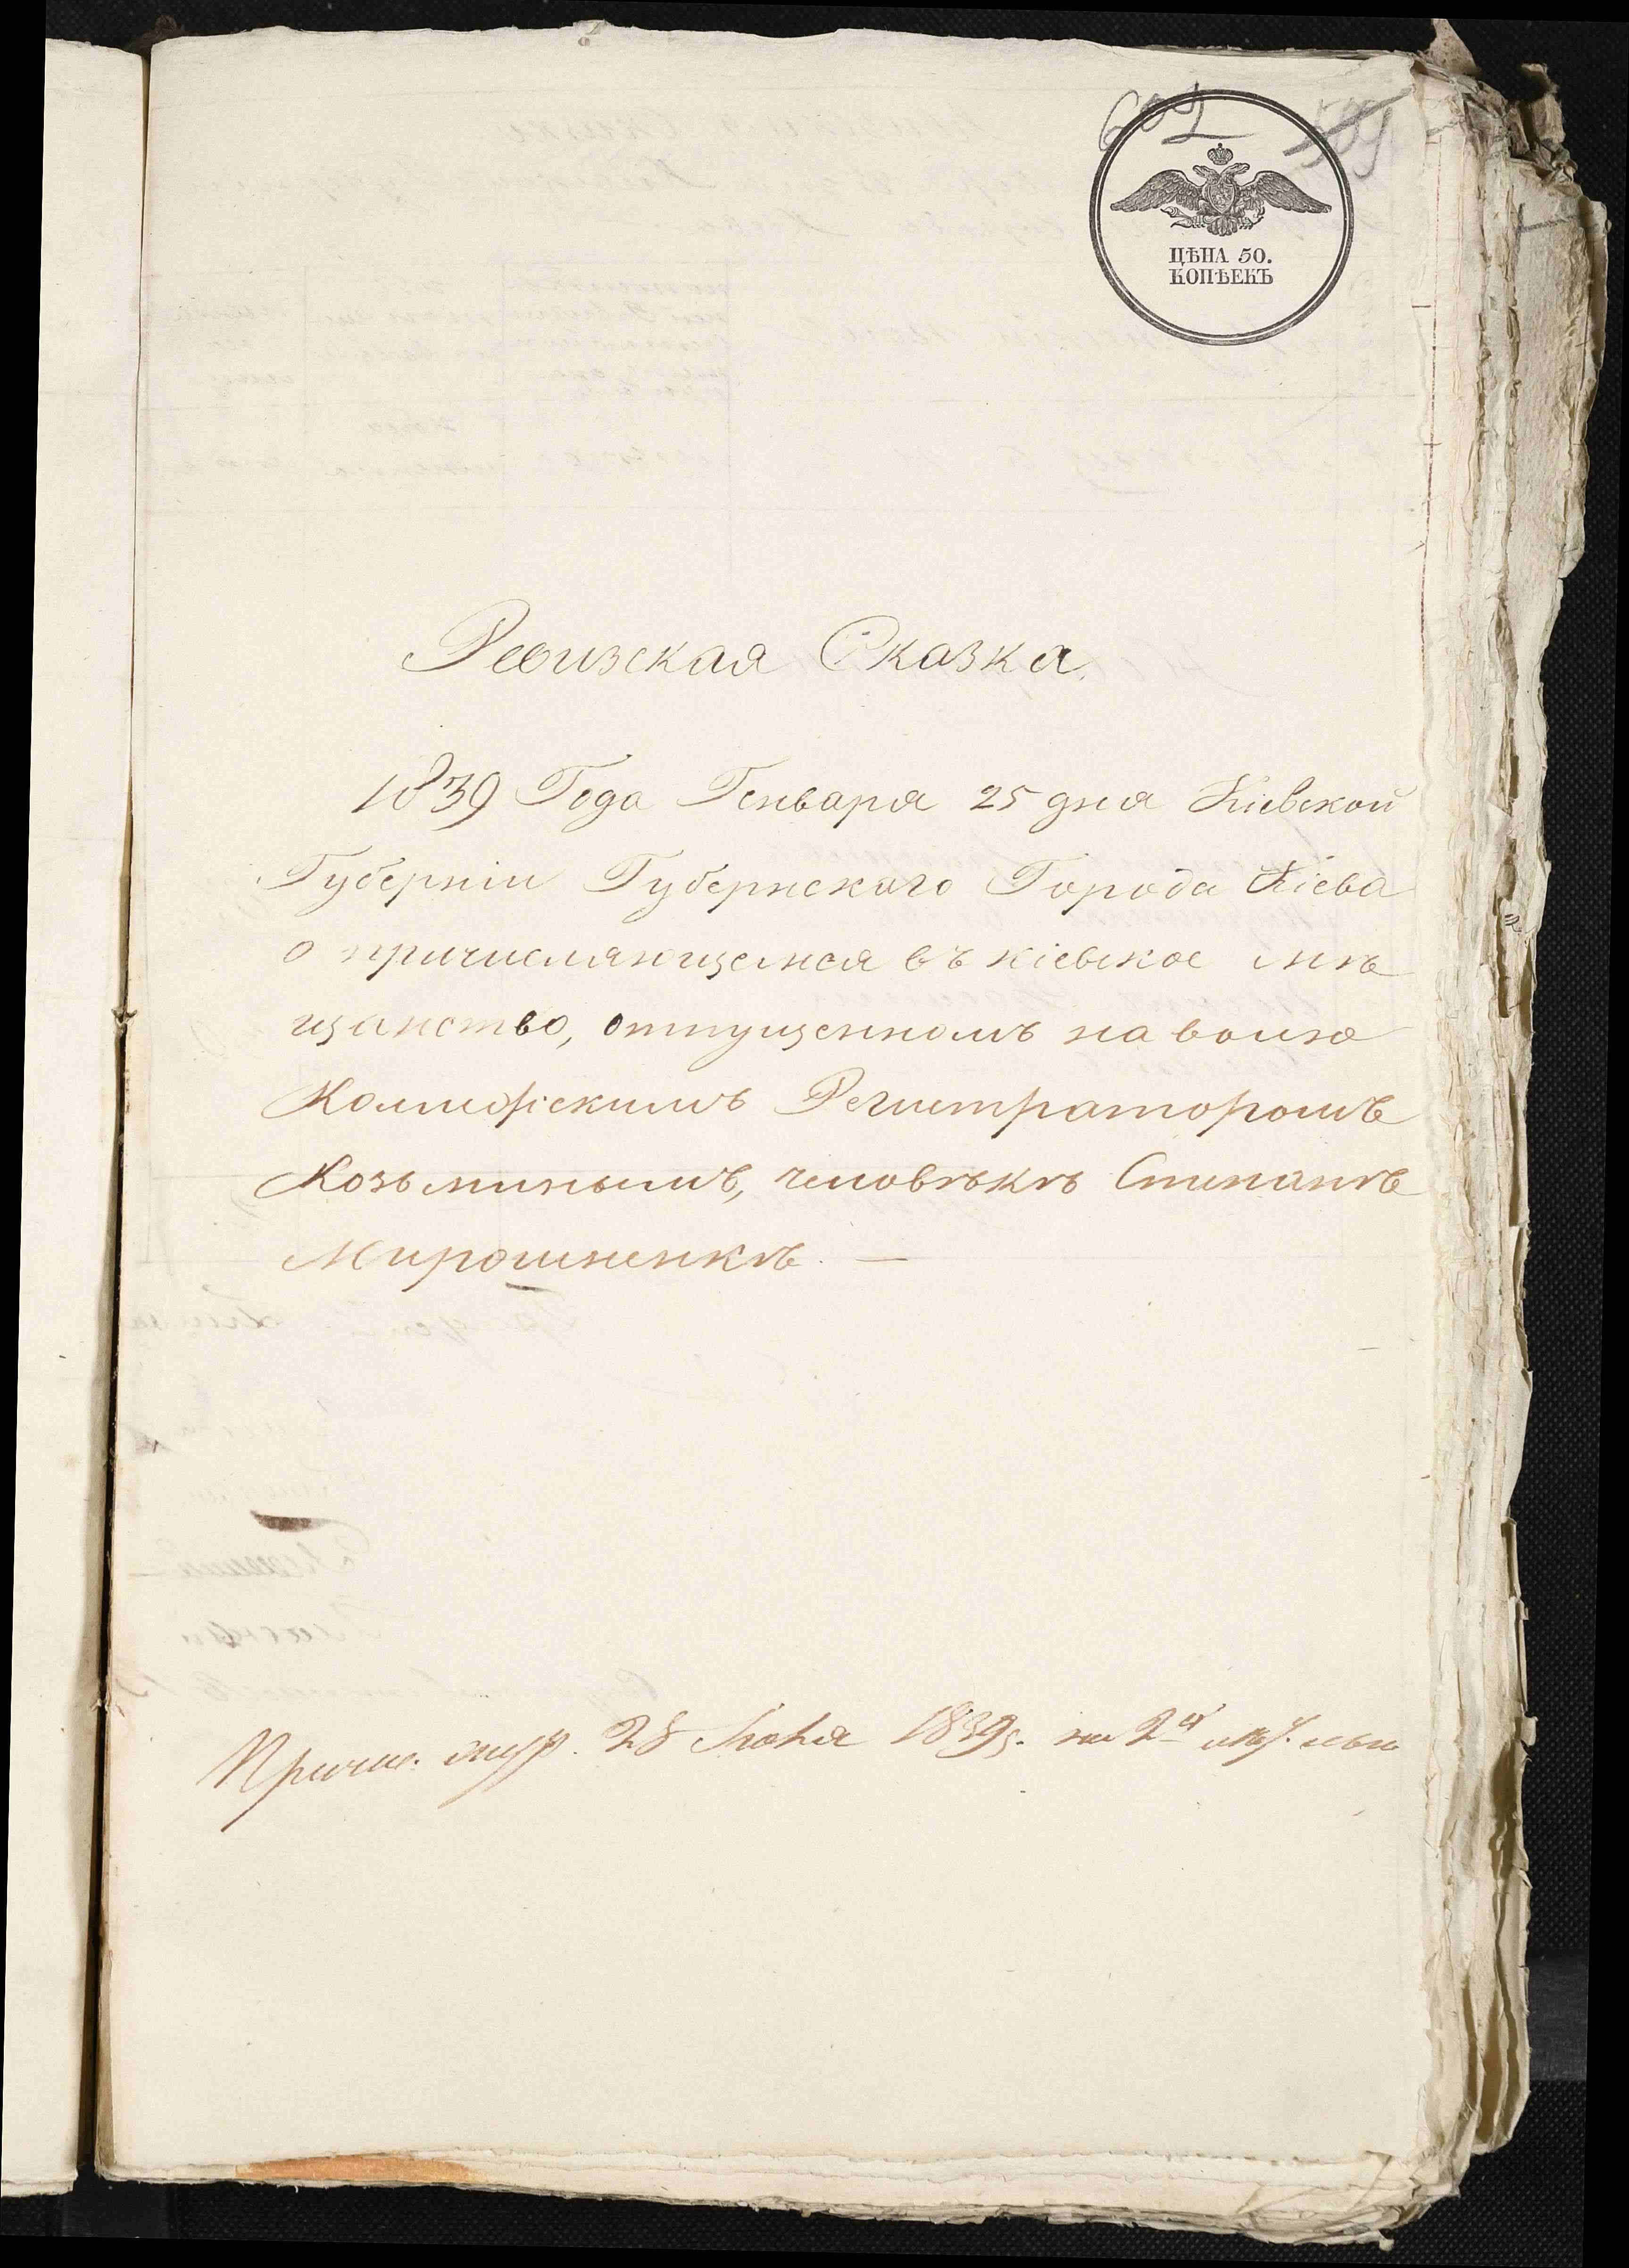 602 509
ЦѢНА 50.
КОПѢЕКЪ
Ревизская Сказка
1839 Года Генваря 25 дня Кіевской
Губерніи Губернскаго Города Кіева
о причисляющемся въ кіевское мѣ
щанство, отпущенномъ на волю
Коллежскимъ Регистраторомъ
Козьминымъ, человѣкѣ Степанѣ
Мирошненкѣ. —
Причис. 28 Іюня 1839 г. на 2й